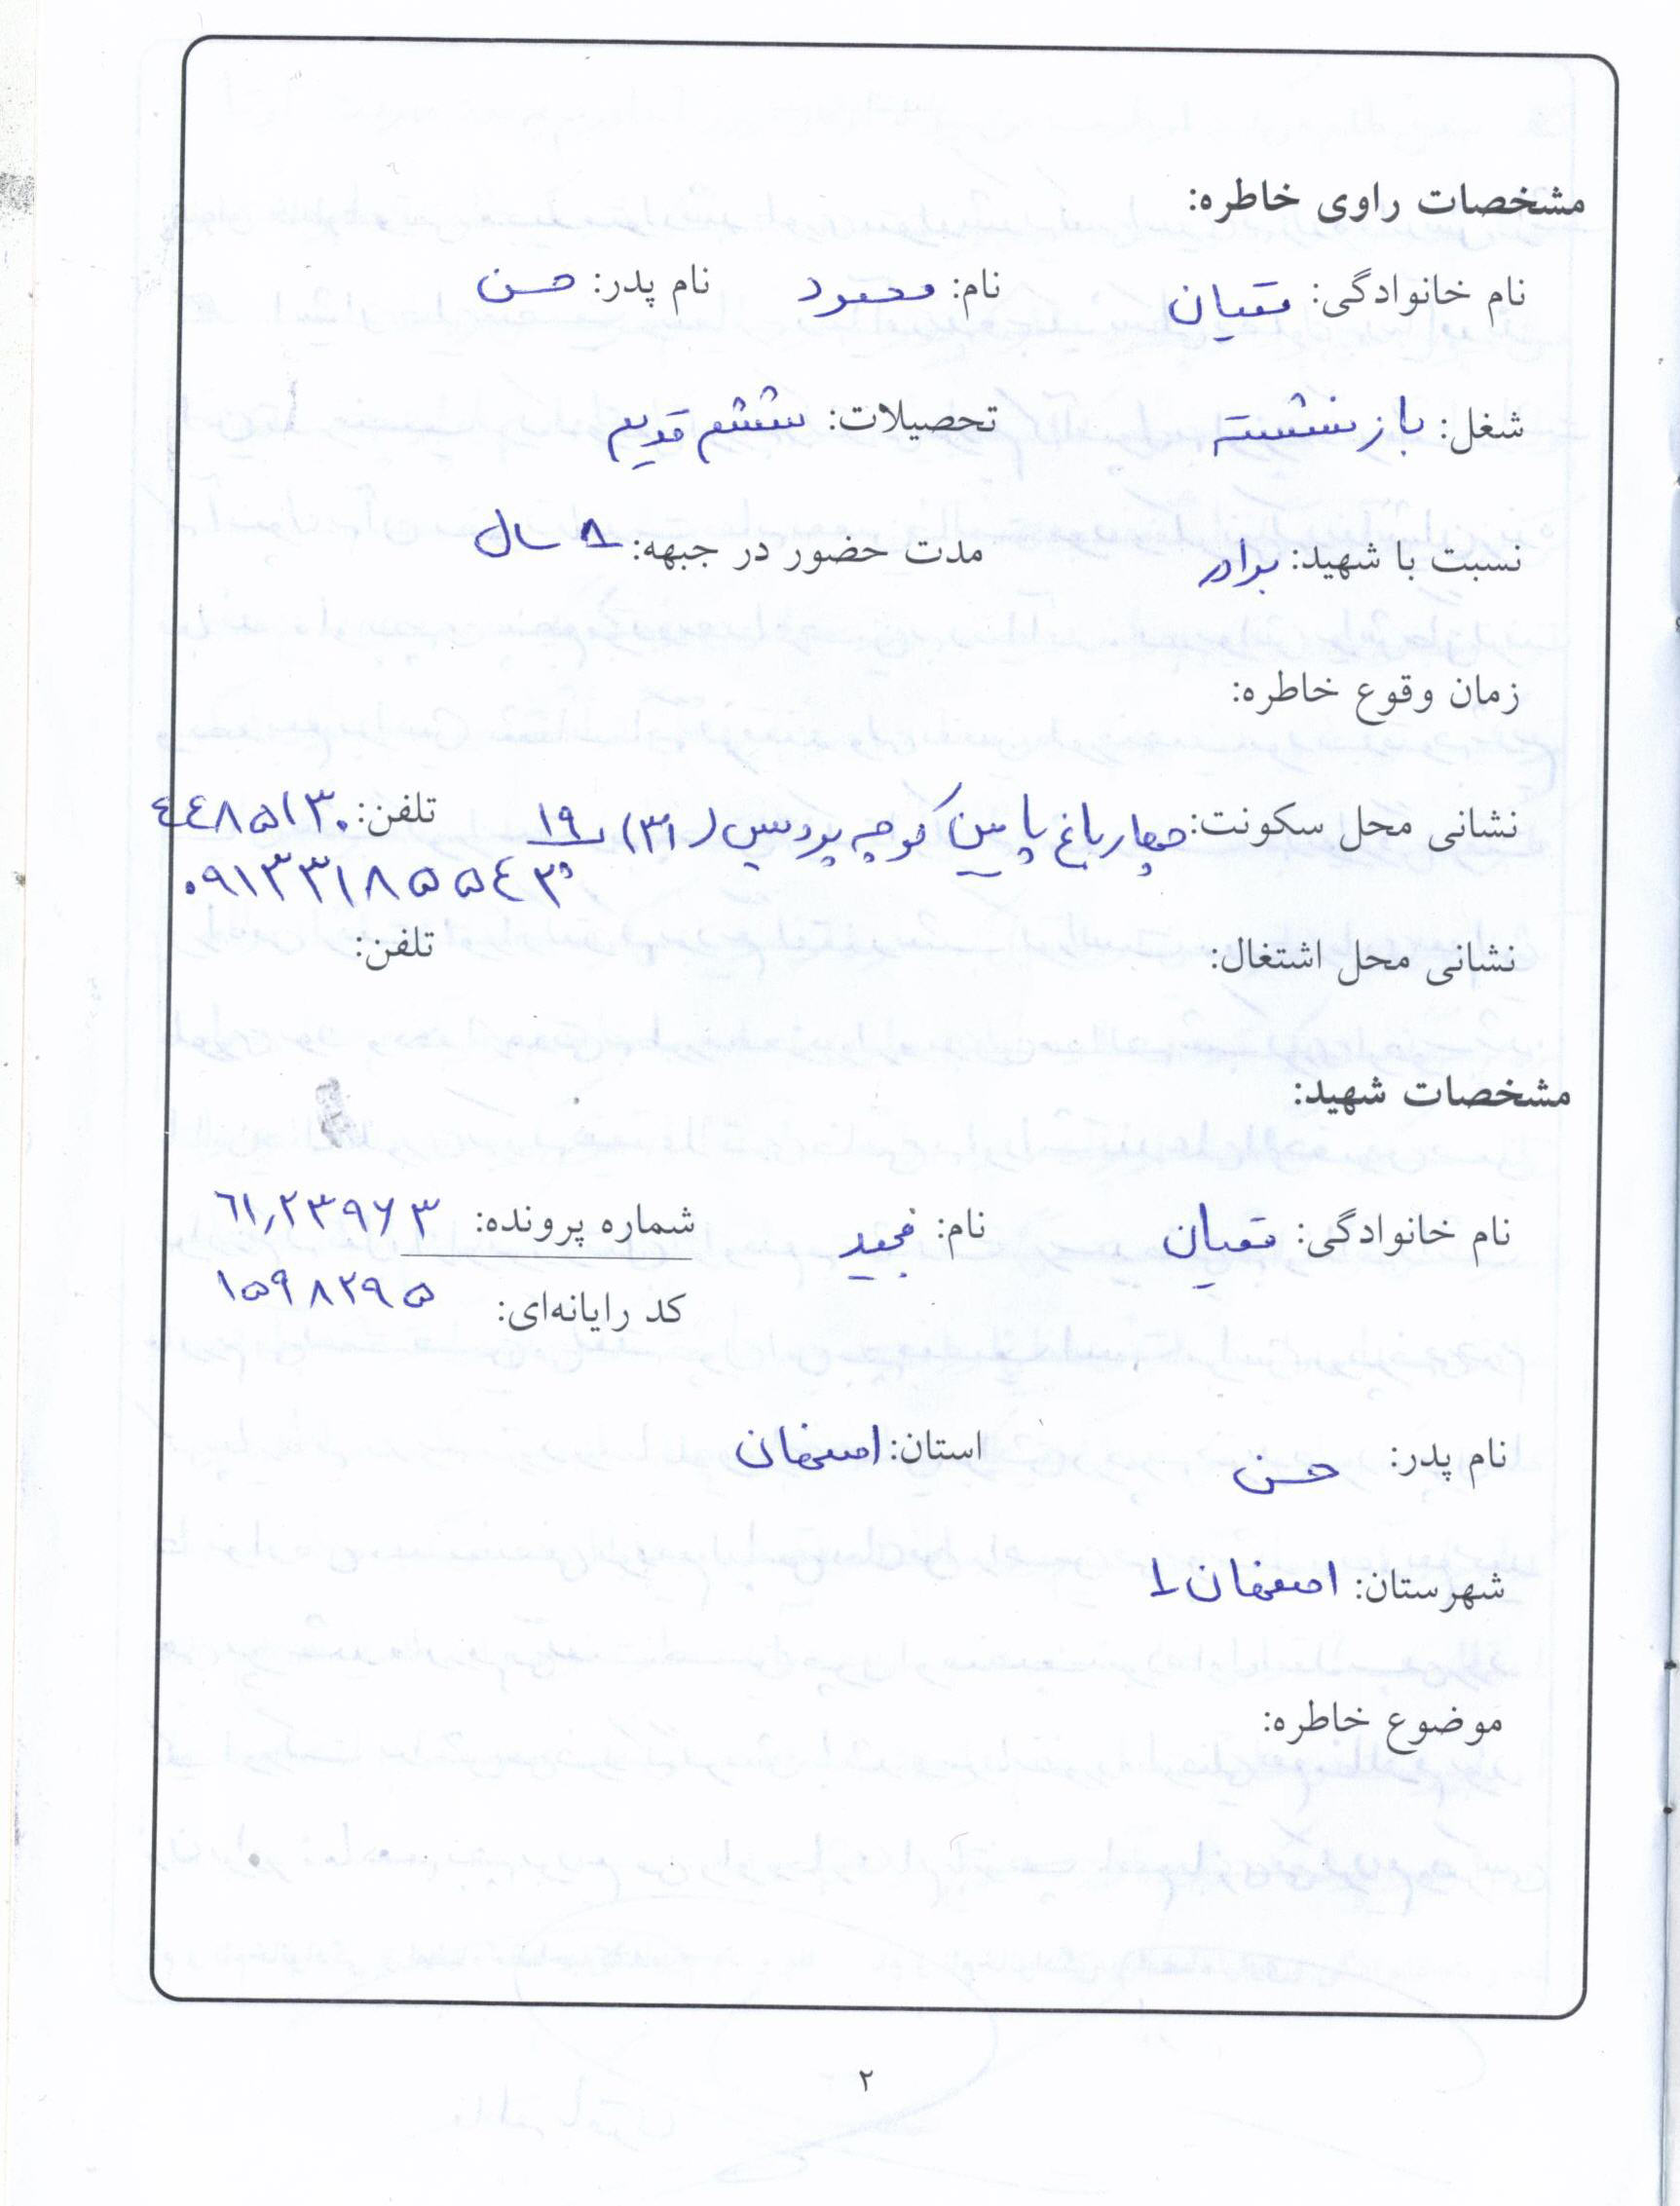 مشخصات راوی خاطره:
نام خانوادگی: مقیان نام: محمود نام پدر: حسن
شغل: بازنشسته تحصیلات: ششم قدیم
نسبت با شهید: برادر مدت حضور در جبهه: ۸ سال
زمان وقوع خاطره:
نشانی محل سکونت: چهارباغ پایین کوچه پردیس (۳۱) ۱۹ تلفن: ۴۴۸۵۱۳۰
۰۹۱۳۳۱۸۵۵۴۳
نشانی محل اشتغال: تلفن:
مشخصات شهید:
نام خانوادگی: مقیان نام: مجید شماره پرونده: ۶۱٫۲۳۹۶۳
کد رایانه‌ای: ۱۵۹۸۲۹۵
نام پدر: حسن استان: اصفهان
شهرستان: اصفهان ۱
موضوع خاطره:
۲